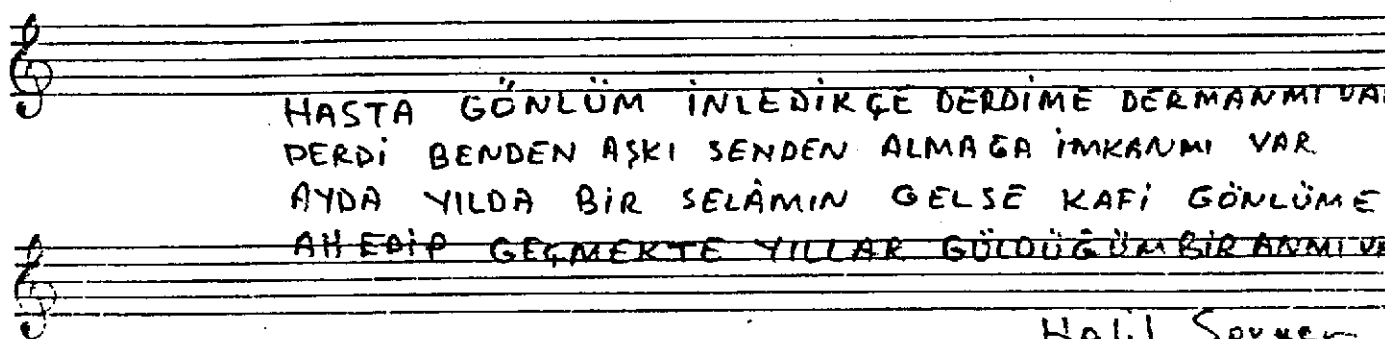 HASTA GÖNLÜM İNLEDİKÇE DERDİME DERMANMI VAR
DERDİ BENDEN AŞKI SENDEN ALMAĞA İMKANMI VAR
AYDA YILDA BİR SELÂMIN GELSE KAFİ GÖNLÜME
AH EDİP GEÇMEKTE YILLAR GÜLDÜĞÜM BİR ANMI VA
Halil